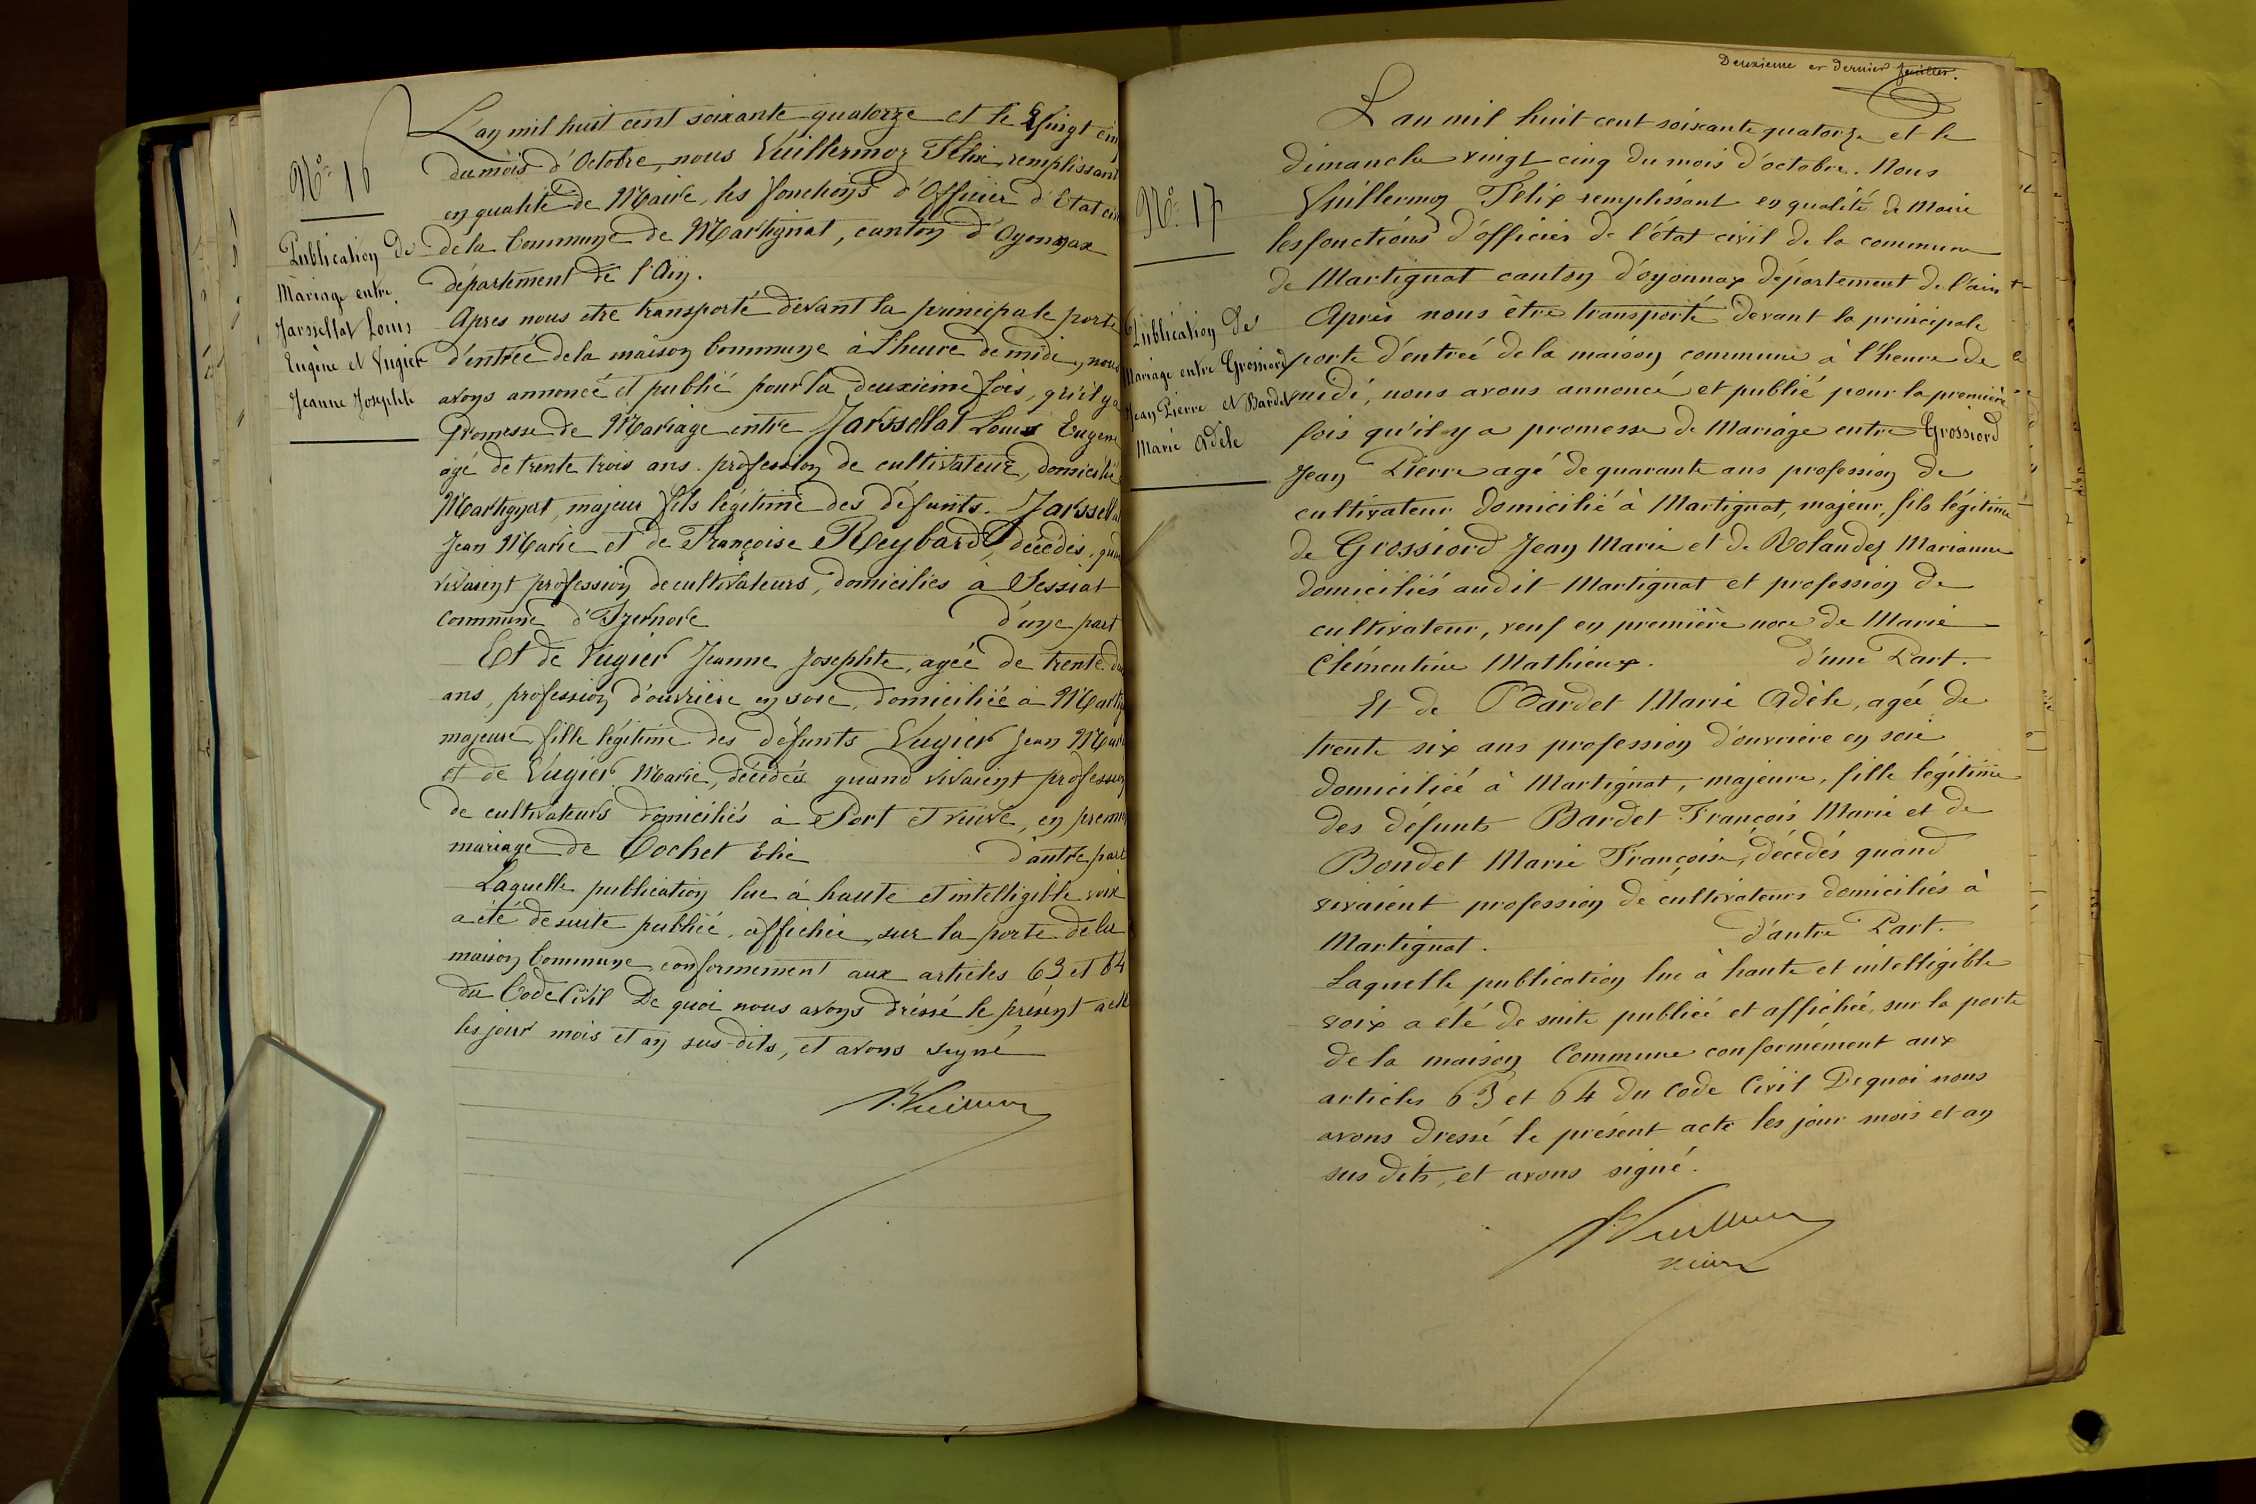 N° 16
Publication de
Mariage entre
Jarssellat Louis
Eugène et Vugier
Jeanne Josephte
L'an mil huit cent soixante quatorze et le Vingt cin
du mois d'Octobre, nous Vuillermoz Félix, remplissant
en qualité de Maire, les fonctions d'Officier d'Etat civ
de la Commune de Martignat, canton d'Oyonnax
département de l'Ain.
Après nous etre transporté devant la principale porte
d'entrée de la maison Commune à l'heure de midi, nous
avons annoncé et publié pour la deuxième fois, qu'il y a
Promesse de Mariage entre Jarssellat Louis Eugène
agé de trente trois ans. profession de cultivateur, domicilié
Martignat, majeur fils légitime des défunts. Jarssellat
Jean Marie et de Françoise Reybard, décédés, quan
vivaient profession de cultivateurs, domiciliés à Sessiat
Commune d'Izernore d'une part
Et de Vugier Jeanne Josephte, agée de trente deu
ans, profession d'ouvrière en soie, domiciliée à Martig
majeure, fille légitime des défunts Vugier Jean Mari
et de Vugier Marie, décédés quand vivaient profession
de cultivateurs domiciliés à Port et veuve, en premi
mariage de Cochet Elie d'autre part
Laquelle publication lue à haute et intelligible voix
a été de suite publiée, affichée, sur la porte de la
maison Commune, conformément aux articles 63 et 64
du Code Civil De quoi nous avons dréssé le présent acte
les jour mois et an sus-dits, et avons signé
Deuxième et dernier feuillet.
N° 17
Publication de
Mariage entre Grossiord
Jean Pierre et Bardet
Marie Adèle
L'an mil huit cent soixante quatorze et le
dimanche vingt cinq du mois d'octobre. Nous
Vuillermoz Félix remplissant en qualité de Maire
les fonctions d'officier de l'état civil de la commune
de Martignat canton d'oyonnax département de l'ain
Après nous être transporté devant la principale
porte d'entrée de la maison commune à l'heure de
midi, nous avons annoncé et publié pour la première
fois qu'il y a promesse de Mariage entre Grossiord
Jean Pierre agé de quarante ans profession de
cultivateur domicilié à Martignat, majeur, fils légitime
de Grossiord Jean Marie et de Rolandez Marianne
domiciliés audit Martignat et profession de
cultivateur, veuf en première noce de Marie
Clémentine Mathieux. d'une Part.
Et de Bardet Marie Adèle, agée de
trente six ans profession d'ouvrière en soie
domiciliée à Martignat, majeure, fille légitime
des défunts Bardet François Marie et de
Bondet Marie Françoise, décédés quand
vivaient profession de cultivateurs domiciliés à
Martignat. d'autre Part.
Laquelle publication lue à haute et intelligible
voix a été de suite publiée et affichée, sur la porte
de la maison Commune conformément aux
articles 63 et 64 du code Civil De quoi nous
avons dressé le présent acte les jour mois et an
sus dits, et avons signé.